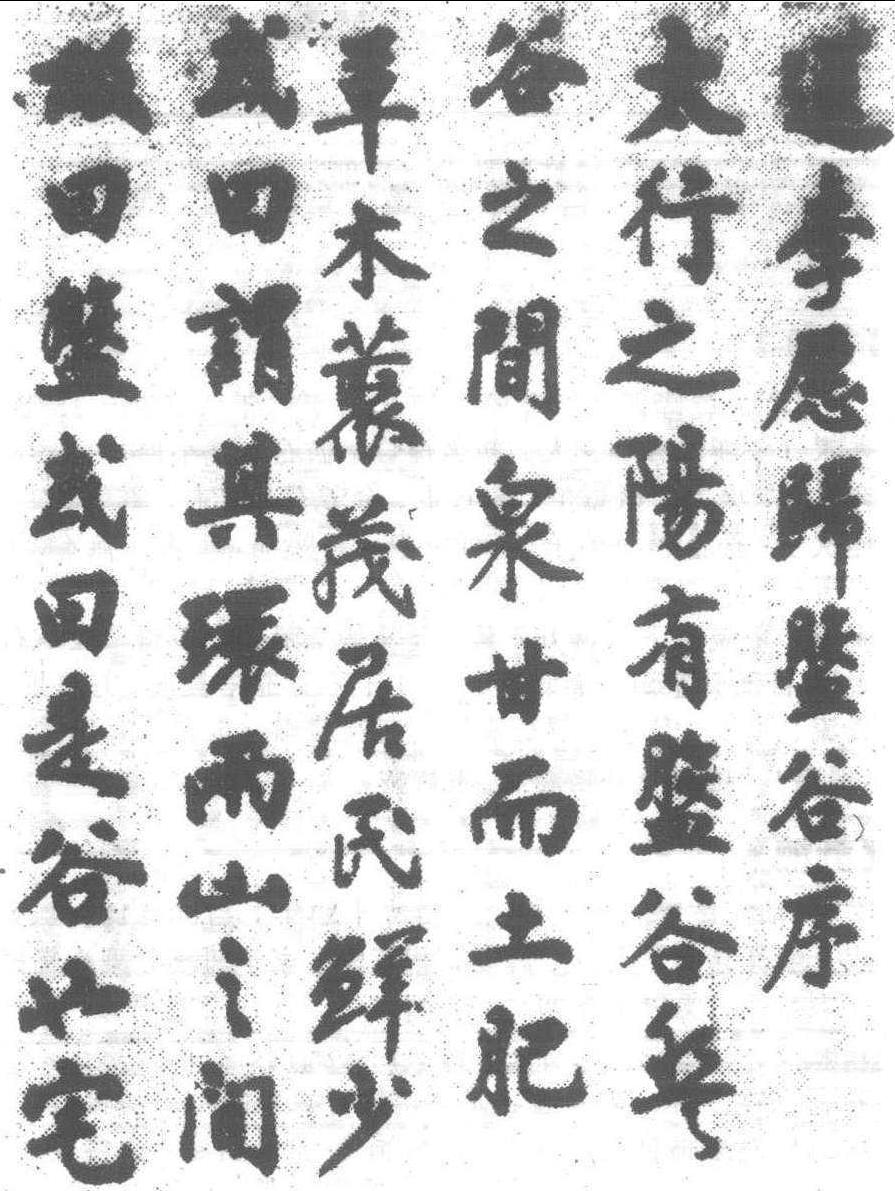 送李愿歸盤谷序
太行之陽有盤谷盤
谷之間泉甘而土肥
草木藂茂居民鮮少
或曰謂其環兩山之間
故曰盤或曰是谷也宅